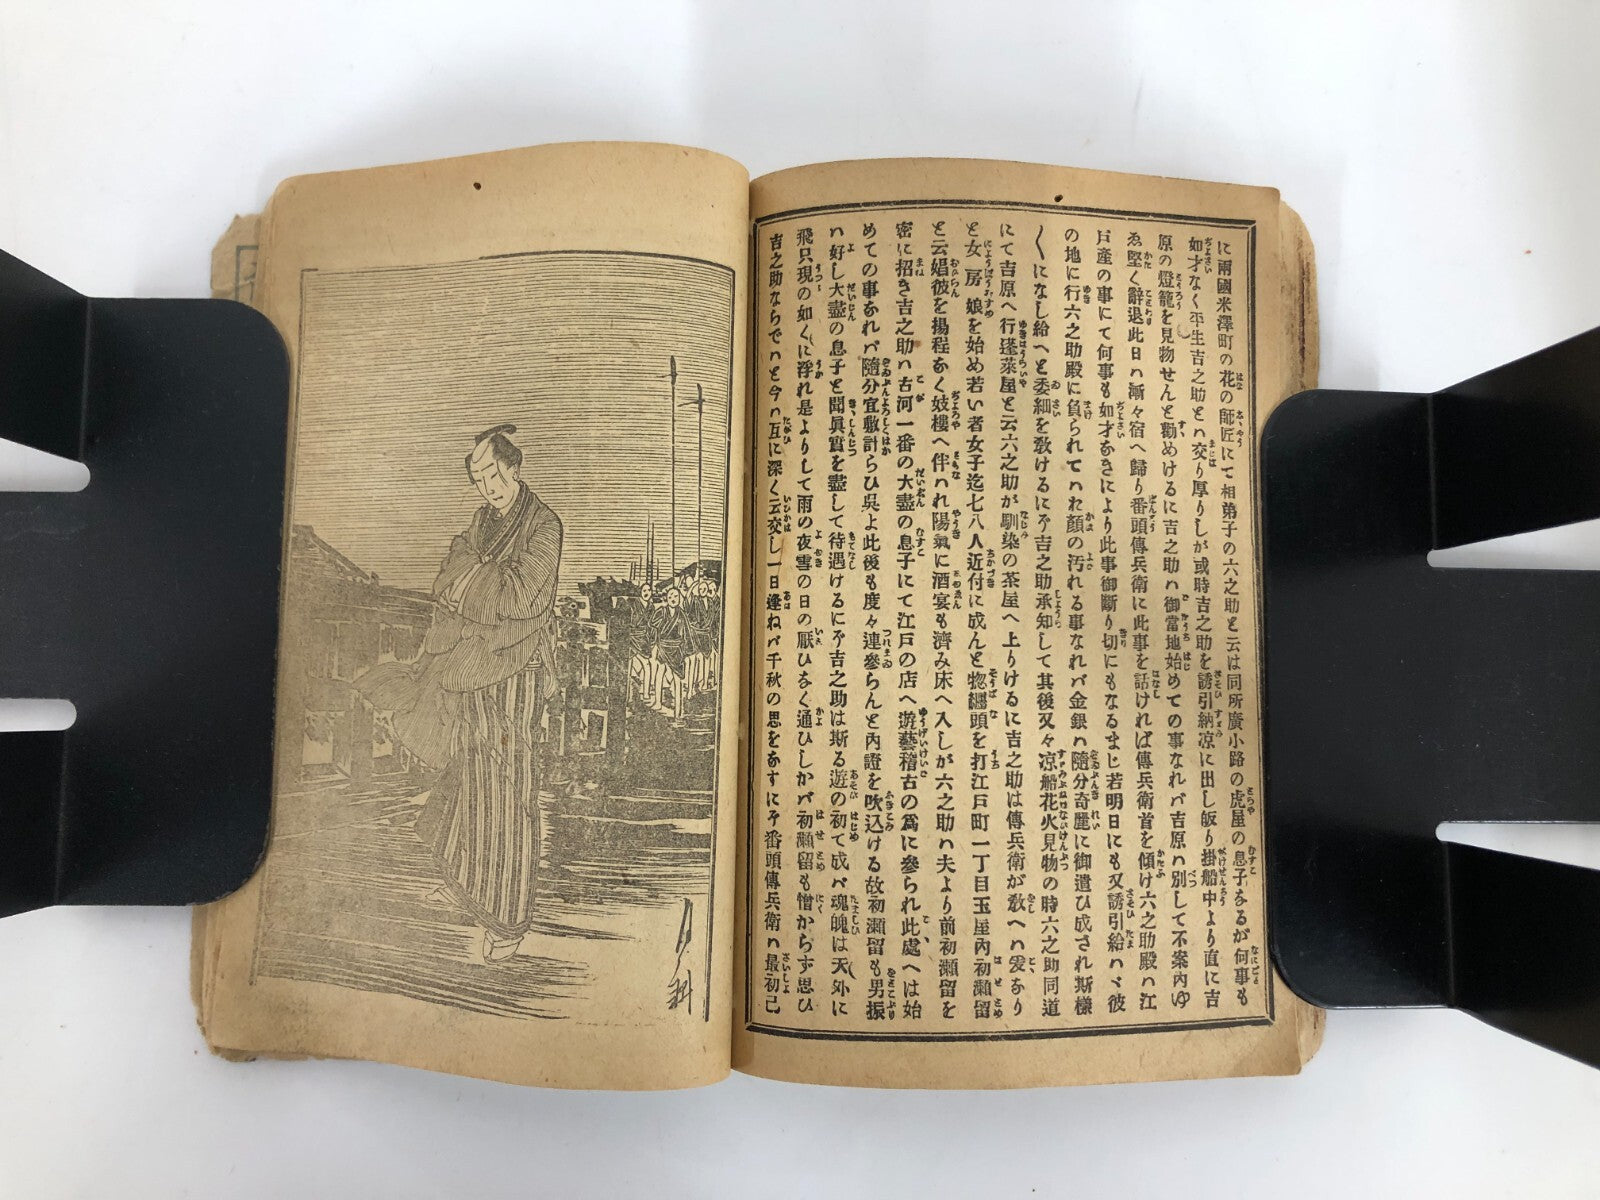 に兩國米澤町の花の師匠にて相弟子の六之助と云は同所廣小路の虎屋の息子なるが何事も
如才なく平生吉之助とハ交り厚りしが或時吉之助を誘引納凉に出し皈り掛船中より直に吉
原の燈籠を見物せんと勸めけるに吉之助ハ御當地始めての事なれバ吉原ハ別して不案内ゆ
ゑ堅く辭退此日ハ漸々宿へ歸り番頭傳兵衛に此事を話ければ傳兵衛首を傾け六之助殿ハ江
戸産の事にて何事も如才なきにより此事御斷り切にもなるまじ若明日にも又誘引給ハヾ彼
の地に行六之助殿に負られてハた顔の汚れる事なれバ金銀ハ隨分奇麗に御遣ひ成され斯樣
〱になし給へと委細を敎けるにぞ吉之助承知して其後又々凉船花火見物の時六之助同道
にて吉原へ行蓬萊屋と云六之助が馴染の茶屋へ上りけるに吉之助は傳兵衛が敎へハ爰なり
と女房娘を始め若い者女子迄七八人近付に成んと惣纒頭を打江戸町一丁目玉屋内初瀬留
と云娼彼を揚程なく妓樓へ伴ハれ陽氣に酒宴も濟み床へ入しが六之助ハ夫より前初瀬留を
密に招き吉之助ハ古河一番の大盡の息子にて江戸の店へ遊藝稽古の爲に參られ此處へは始
めての事なれバ隨分宜敷計らひ呉よ此後も度々連參らんと内證を吹込ける故初瀬留も男振
ハ好し大盡の息子と聞眞實を盡して待遇けるにぞ吉之助は斯る遊の初て成バ魂魄は天外に
飛只現の如くに浮れ是よりして雨の夜雪の日の厭ひなく通ひしかバ初瀬留も憎からず思ひ
吉之助ならでハと今ハ互に深く云交し一日逢ねバ千秋の思をなすにぞ番頭傳兵衛ハ最初己